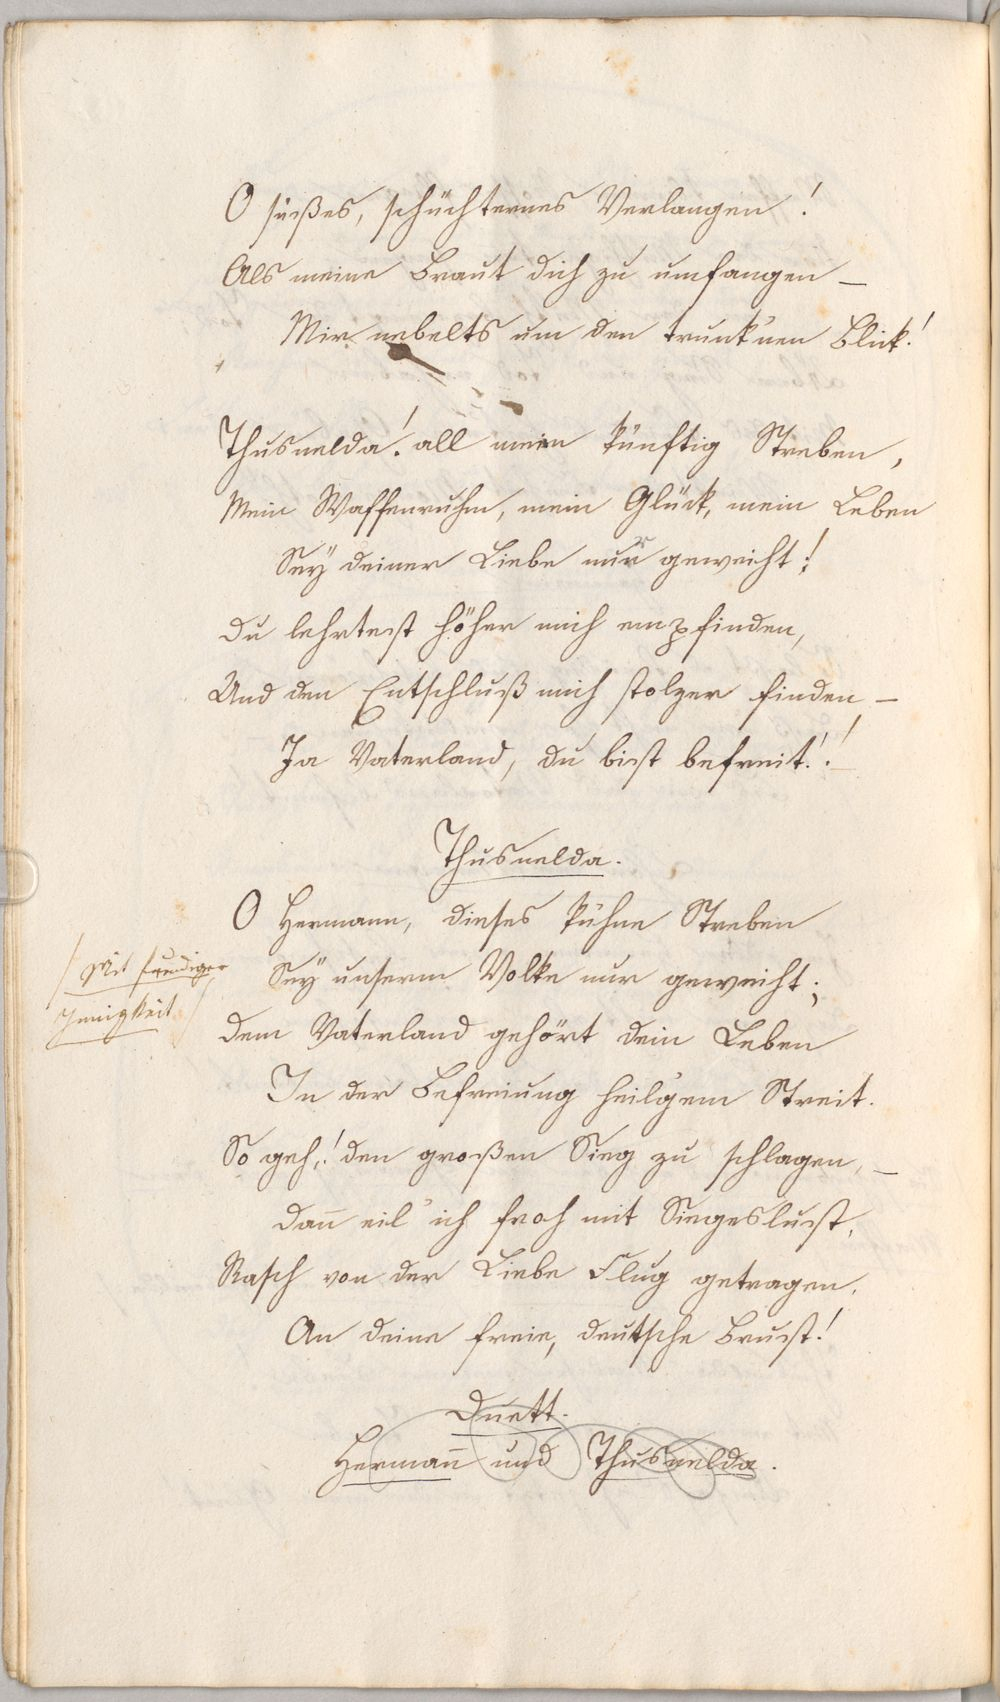 O süßes, schüchternes Verlangen!
Als meine Braut dich zu umfangen –
Mir nebelts um den trunk'nen Blick!
Thusnelda! all mein künftig Streben,
Mein Waffenruhm, mein Glück, mein Leben
Sey deiner Liebe nur geweiht!
Du lehrtest höher mich empfinden,
Und den Entschluß mich stolzer finden –
Ja Vaterland, du bist befreit!!
Thusnelda.
O Hermann, dieses kühne Streben
Mit freudiger
Sey unserm Volke nur geweiht;
Innigkeit
Dem Vaterland gehört dein Leben
In der Befreiung heil'gem Streit.
So geh,! den großen Sieg zu schlagen, –
Dañ eil' ich froh mit Siegeslust,
Rasch von der Liebe Flug getragen,
An deine freie, deutsche Brust!
Duett.
Hermañ und Thusnelda.